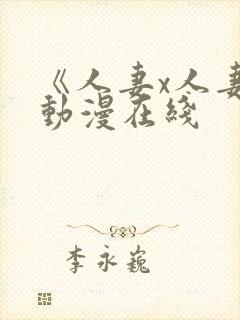 《人妻x人妻
動漫在綫
李永巍